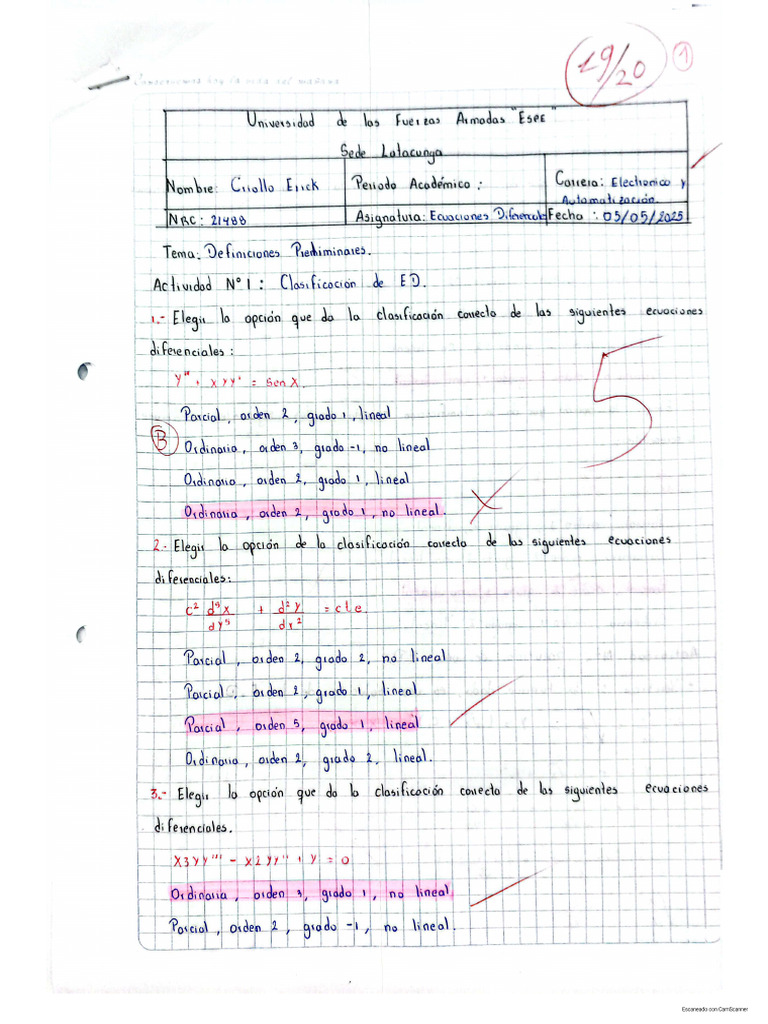 19/20
1
Universidad de las Fuerzas Armadas "ESPE"
Sede Latacunga
Nombre: Criollo Erick
Periodo Académico:
Carrera: Electronica y Automatización.
NRC: 21488
Asignatura: Ecuaciones Diferenciales
Fecha: 05/05/2025
Tema: Definiciones Preliminares.
Actividad N°1: Clasificación de ED.
1.- Elegir la opción que da la clasificación correcta de las siguientes ecuaciones
diferenciales:
5
y''' + xyy' = sen x.
Parcial, orden 2, grado 1, lineal
B
Ordinaria, orden 3, grado -1, no lineal
Ordinaria, orden 2, grado 1, lineal
Ordinaria, orden 2, grado 1, no lineal.
2.- Elegir la opción de la clasificación correcta de las siguientes ecuaciones
diferenciales:
c² d⁵x/dy⁵ + d²y/dx² = cte.
Parcial, orden 2, grado 2, no lineal
Parcial, orden 2, grado 1, lineal
Parcial, orden 5, grado 1, lineal
Ordinaria, orden 2, grado 2, lineal.
3.- Elegir la opción que da la clasificación correcta de las siguientes ecuaciones
diferenciales.
x3yy''' - x2yy'' + y = 0
Ordinaria, orden 3, grado 1, no lineal
Parcial, orden 2, grado -1, no lineal.
Escaneado con CamScanner